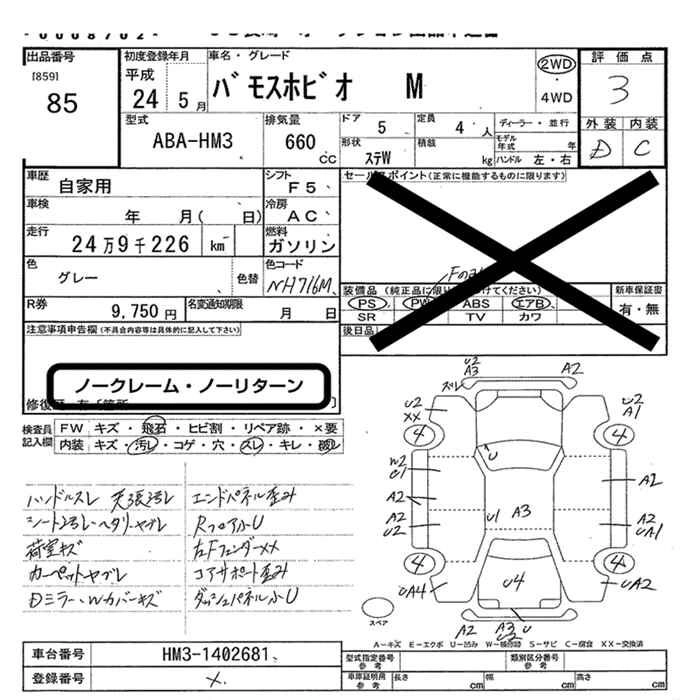 出品番号
[859]
85
初度登録年月
平成
24 5月
車名・グレード
バモスホビオ M
2WD
・
4WD
評価点
3
外装 内装
D C
型式
ABA-HM3
排気量
660 cc
ドア 5
定員 4 人
ディーラー・並行
モデル年式 年
形状 ステW
積載 kg
ハンドル 左・右
車歴
自家用
シフト
F5
車検
年 月( 日)
冷房
AC
走行
24万9千226 km
燃料
ガソリン
色
グレー
色替
色コード
NH716M
R券
9,750円
名変通知期限
月 日
セールスポイント(正常に機能するものに限ります)
装備品(純正品に限り
けてください)
PS PW ABS エアB
SR TV カワ
新車保証書
有・無
後日品
注意事項申告欄(不具合内容等は具体的に記入して下さい)
ノークレーム・ノーリターン
検査員記入欄
FW キズ・飛石・ヒビ割・リペア跡・×要
内装 キズ・汚レ・コゲ・穴・スレ・キレ・破レ
ハンドルスレ 天張汚レ
シート汚レ・ヘタリ・ヤブレ
荷室キズ
カーペットヤブレ
Dミラー・Wカバーキズ
エンドパネル歪み
RフロアかU
左FフェンダーXX
コアサポート歪み
ダッシュパネル小U
U2
A3
A2
スレ
U2
XX
U2
A1
4
4
W2
U1
U
A2
A2
U1 A3
A2
U2
A2
UA1
4
4
UA4
U4
UA2
スペア
A2 A3
U2
U
A－キズ E－エクボ U－凹み W－補修跡 S－サビ C－腐食 XX－交換済
車台番号
HM3-1402681
登録番号
×
型式指定番号
参考
類別区分番号
参考
車庫証明用
参考
長さ cm
幅 cm
高さ cm